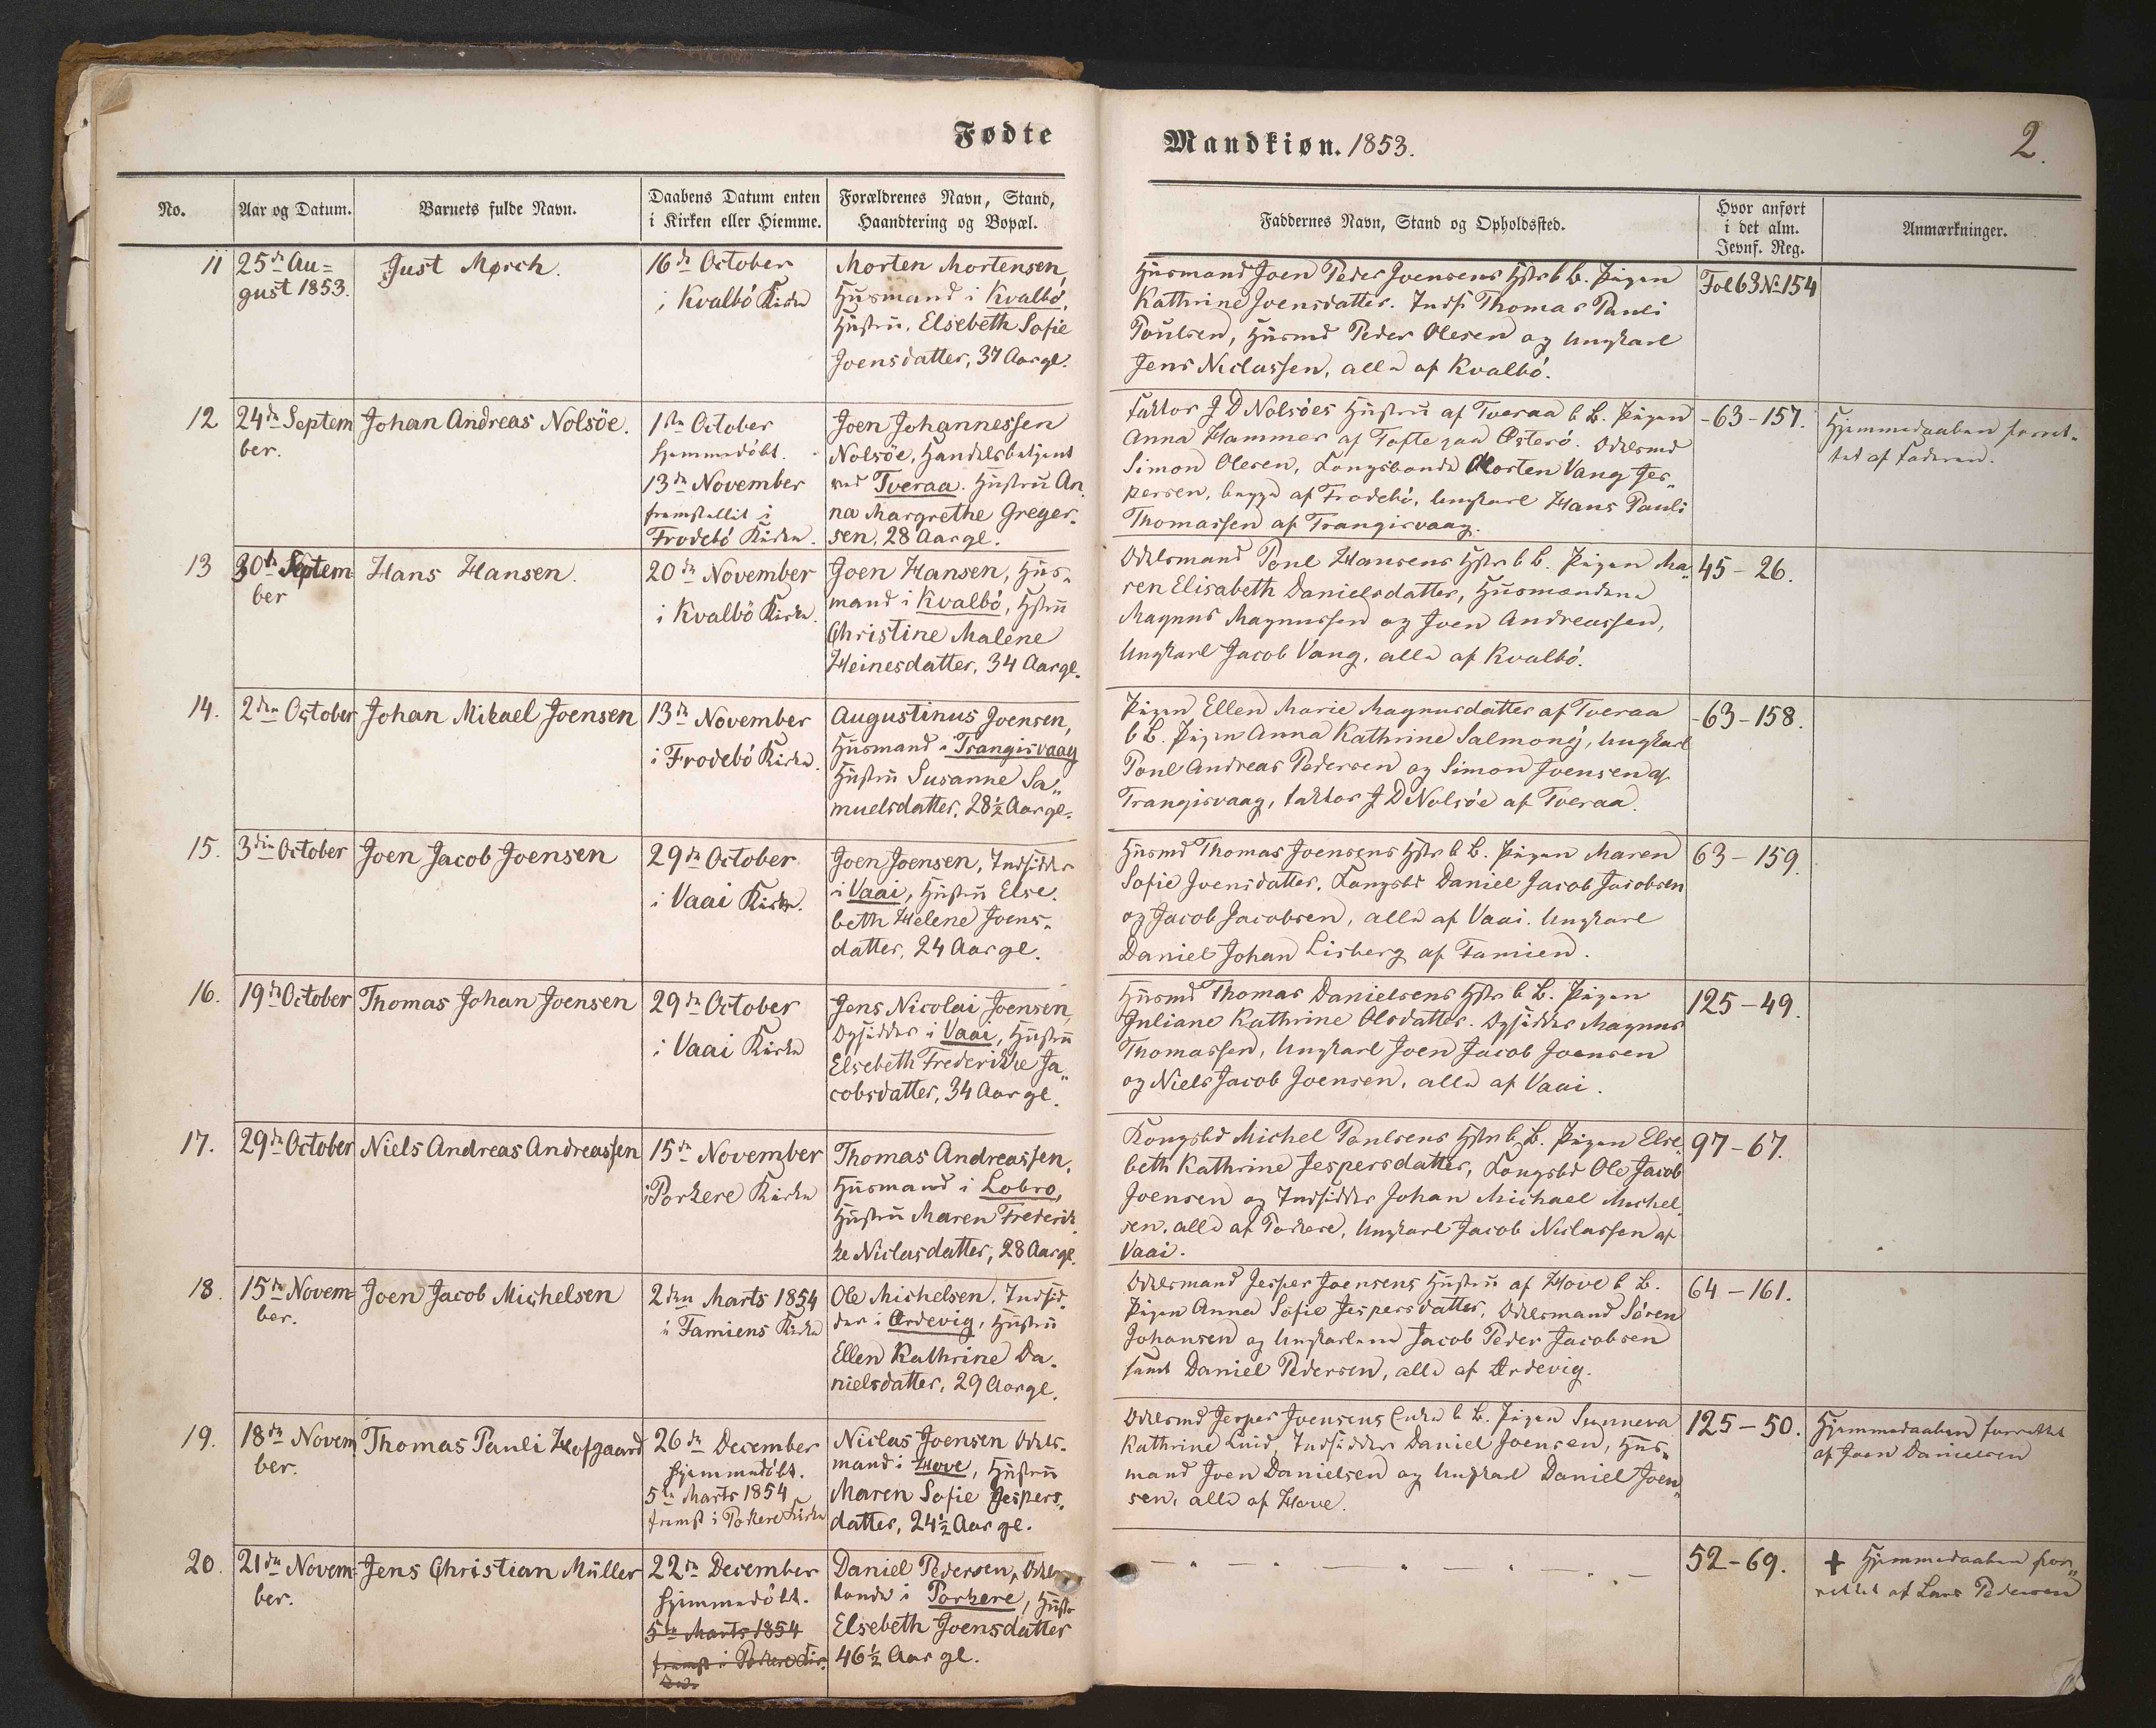 Fødte
Mandkiøn. 1853.
2.
No.
Aar og Datum.
Barnets fulde Navn.
Daabens Datum enten
i Kirken eller Hiemme.
Forældrenes Navn, Stand,
Haandtering og Bopæl.
Faddernes Navn, Stand og Opholdssted.
Hvor anført
i det alm.
Jevnf. Reg.
Anmærkninger.
11
25de Au=
gust 1853.
Just Mørch.
16de October
i Kvalbó Kirke
Morten Mortensen,
Husmand i Kvalbó,
Hustru, Elsebeth Sofie
Joensdatter, 37 Aar gl.
Husmand Joen Peder Joensens Hstr b B. Pigen
Kathrine Joensdatter. Inds. Thomas Pauli
Poulsen, Husmd Peder Olesen og Ungkarl
Jens Niclassen, alle af Kvalbó.
Fol 63 No 154
12
24de Septem
ber.
Johan Andreas Nolsöe.
1ste October
hjemmedöbt.
13de November
fremstillet i
Frodebó Kirke.
Joen Johannessen
Nolsöe, Handelsbetjent
ved Tveraa. Hustru An
na Margrethe Greger-
sen, 28 Aar gl.
Faktor J D Nolsöes Hustru af Tveraa b B. Pigen
Anna Hammer af Tofte paa Österö. Odelsmd
Simon Olesen, Kongsbonde Morten Vang Jes-
persen, begge af Frodebó, Ungkarl Hans Pauli
Thomassen af Trangisvaag.
-63-157.
Hjemmedaaben forret-
tet af Faderen.
13
30te Septem
ber
Hans Hansen.
20de November
i Kvalbö Kirke.
Joen Hansen, Hus-
mand i Kvalbó, Hstru
Christine Malene
Heinesdatter, 34 Aar gl.
Odelsmand Poul Hansens Hstr b B. Pigen Ma-
ren Elisabeth Danielsdatter, Husmændene
Magnus Magnussen og Joen Andreassen,
Ungkarl Jacob Vang, alle af Kvalbó.
45-26.
14.
2den October
Johan Mikael Joensen
13de November
i Frodebó Kirke.
Augustinus Joensen,
Husmand i Trangisvaag
Hustru Susanne Sa-
muelsdatter, 28½ Aar gl.
Pigen Ellen Marie Magnusdatter af Tveraa
b B. Pigen Anna Kathrine Salmony, Ungkarl
Poul Andreas Pedersen og Simon Joensen af
Trangisvaag, Faktor J D Nolsöe af Tveraa.
-63-158.
15.
3die October
Joen Jacob Joensen
29de October
i Vaai Kirke.
Joen Joensen, Indsidder
i Vaai, Hustru Else-
beth Helene Joens-
datter, 24 Aar gl.
Husmd Thomas Joensens Hstr b B. Pigen Maren
Sofie Joensdatter, Kongsbd Daniel Jacob Jacobsen
og Jacob Jacobsen, alle af Vaai. Ungkarl
Daniel Johan Lisberg af Famien.
63-159.
16.
19de October
Thomas Johan Joensen
29de October
i Vaai Kirke
Jens Nicolai Joensen,
Opsidder i Vaai, Hustru
Elsebeth Frederikke Ja-
cobsdatter, 34 Aar gl.
Husmd Thomas Danielsens Hstr b B. Pigen
Juliane Kathrine Olsdatter. Opsidder Magnus
Thomassen, Ungkarl Joen Jacob Joensen
og Niels Jacob Joensen, alle af Vaai.
125-49.
17.
29de October
Niels Andreas Andreassen
15de November
i Porkere Kirke
Thomas Andreassen,
Husmand i Lobro,
Hustru Maren Frederik
ke Niclasdatter, 28 Aar gl.
Kongsbd Michel Poulsens Hstr b B. Pigen Else
beth Kathrine Jespersdatter, Kongsbd Ole Jacob
Joensen og Indsidder Johan Michael Michel
sen, alle af Porkere, Ungkarl Jacob Niclassen af
Vaai.
97-67.
18.
15de Novem=
ber.
Joen Jacob Michelsen
2den Marts 1854
i Famiens Kirke
Ole Michelsen, Indsid-
der i Ordevig, Hustru
Ellen Kathrine Da-
nielsdatter, 29 Aar gl.
Odelsmand Jesper Joensens Hustru af Hove b B.
Pigen Anna Sofie Jespersdatter, Odelsmand Sören
Johansen og Ungkarlene Jacob Peder Jacobsen
samt Daniel Pedersen, alle af Ordevig.
64-161.
19.
18de Novem
ber.
Thomas Pauli Hofgaard
26de December
hjemmedöbt.
5te Marts 1854
fremst i Porkere Kirke
Niclas Joensen Odels-
mand i Hove, Hustru
Maren Sofie Jespers-
datter, 24½ Aar gl.
Odelsmd Jesper Joensens Enke b B. Pigen Sunneva
Kathrine Luid, Indsidder Daniel Joensen, Hus-
mand Joen Danielsen og Ungkarl Daniel Joen-
sen, alle af Hove.
125-50.
Hjemmedaaben forrettet
af Joen Danielsen
20.
21de Novem=
ber.
Jens Christian Müller
22de December
hjemmedöbt.
5te Marts 1854
fremst i Porkere Kir-
Daniel Pedersen, Odels
bonde i Porkere, Hustr
Elsebeth Joensdatter
46½ Aar gl.
52-69.
+ Hjemmedaaben for-
rettet af Lars Pedersen